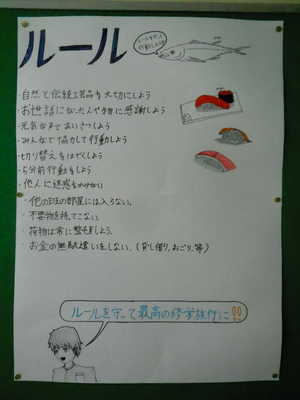 ルール
・自然と伝統工芸品を大切にしよう
・お世話になった人や物に感謝しよう
・元気な声であいさつしよう
・みんなで協力して行動しよう
・切り替えをはっきりしよう
・5分前行動をしよう
・他人に迷惑をかけない
・他の班の部屋には入らない。
・不要物を持ってこない。
・荷物は常に整とんしよう。
・お金の無駄遣いをしない。(貸し借り、おごり、等)
ルールを守って最高の修学旅行に!!